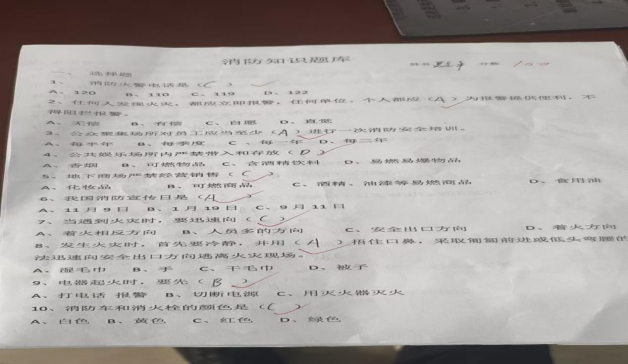 消防知识题库
姓名 分数 100
一、选择题
1、消防火警电话是（C）
A、120 B、110 C、119 D、122
2、任何人发现火灾，都应立即报警。任何单位、个人都应（A）为报警提供便利，不
得阻拦报警。
A、无偿 B、有偿 C、自愿 D、直觉
3、公众聚集场所对员工应当至少（A）进行一次消防安全培训。
A、每半年 B、每季度 C、每一年 D、每二年
4、公共娱乐场所内严禁带入和存放（D）
A、香烟 B、可燃物品 C、含酒精饮料 D、易燃易爆物品
5、地下商场严禁经营销售（C）
A、化妆品 B、可燃商品 C、酒精、油漆等易燃商品 D、食用油
6、我国消防宣传日是（A）
A、11月9日 B、1月19日 C、9月11日
7、当遇到火灾时，要迅速向（C）
A、着火相反方向 B、人员多的方向 C、安全出口方向 D、着火方向
8、发生火灾时，首先要冷静，并用（A）捂住口鼻，采取匍匐前进或低头弯腰的
法迅速向安全出口方向逃离火灾现场。
A、湿毛巾 B、手 C、干毛巾 D、被子
9、电器起火时，要先（B）
A、打电话 报警 B、切断电源 C、用灭火器灭火
10、消防车和消火栓的颜色是（C）
A、白色 B、黄色 C、红色 D、绿色